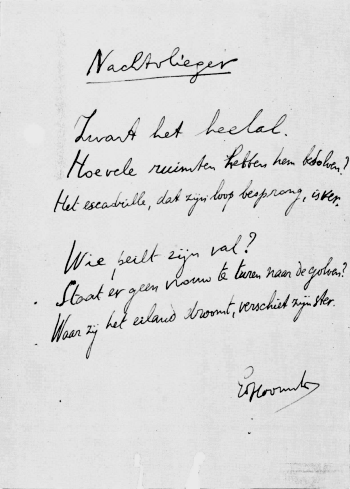 Nachtvlieger
Zwart het heelal.
Hoevele ruimten hebben hem bedolven?
Het escadrille, dat zijn loop besprong, is ver.
Wie peilt zijn val?
Staat er geen vrouw te turen naar de golven?
Waar zij het eiland droomt, verschiet zijn ster.
Ed. Hoornik